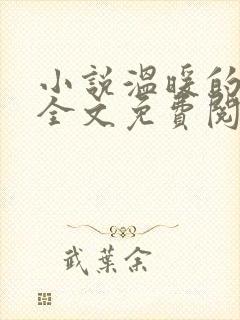 小説溫暖的
全文免費閱
武葉余